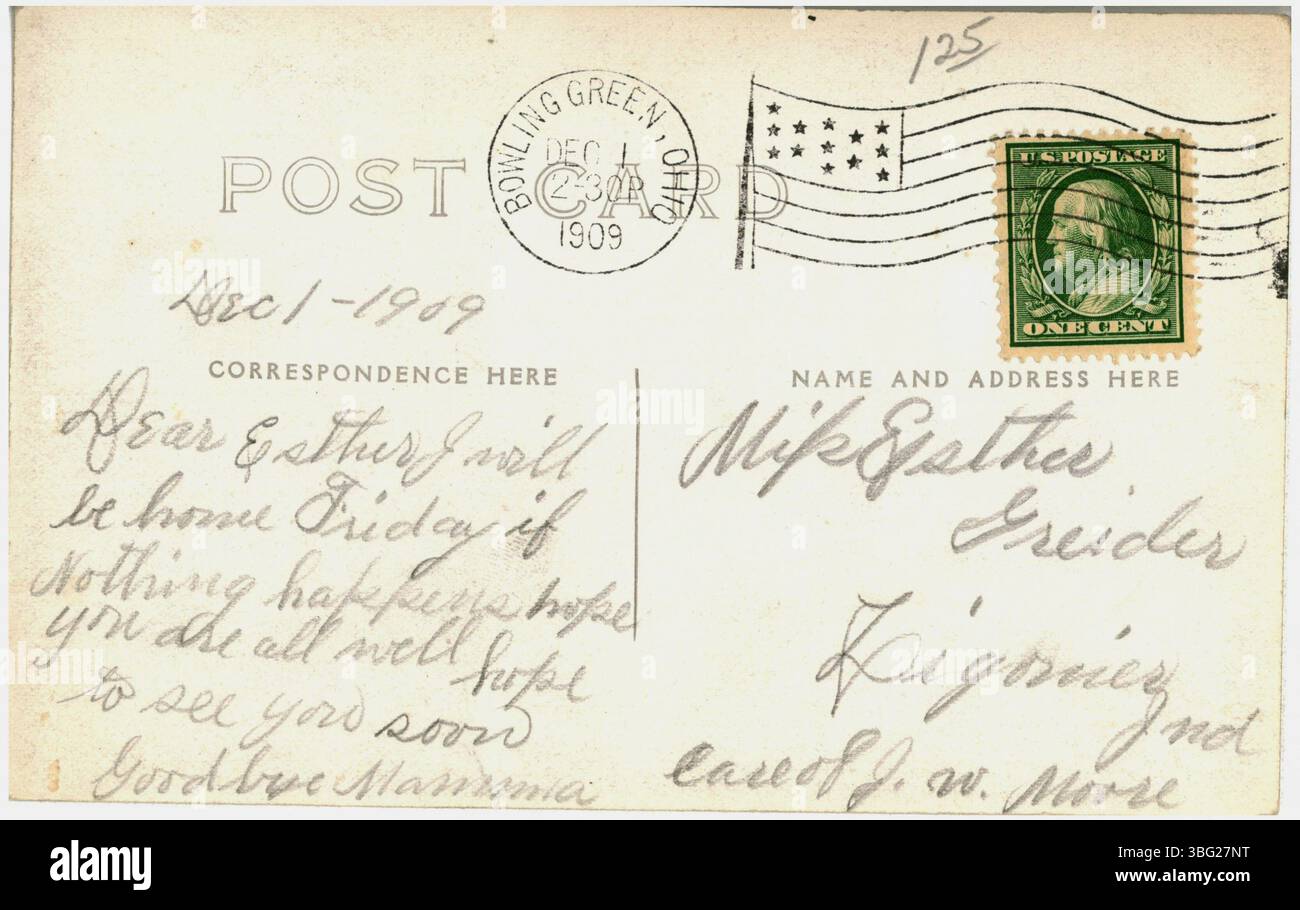 125
BOWLING GREEN, OHIO
DEC 1
2-30P
1909
POST CARD
U.S. POSTAGE
ONE CENT
Dec 1-1909
CORRESPONDENCE HERE
Dear Esther I will
be home Friday if
Nothing happens hope
you are all well hope
to see you soon
Goodbye Mamma
NAME AND ADDRESS HERE
Miss Esther
Greider
Ligonier
Ind
care of J. W. Moore
alamy
alamy
Image ID: 3BG27NT
www.alamy.com